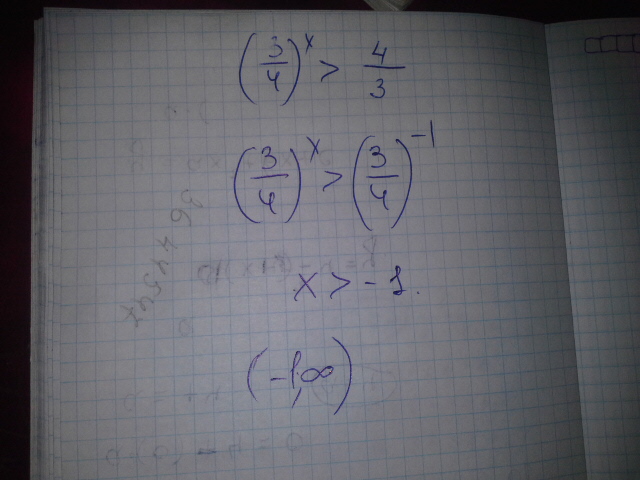 (3/4)^x > 4/3
(3/4)^x > (3/4)^-1
x > -1.
(-1,∞)